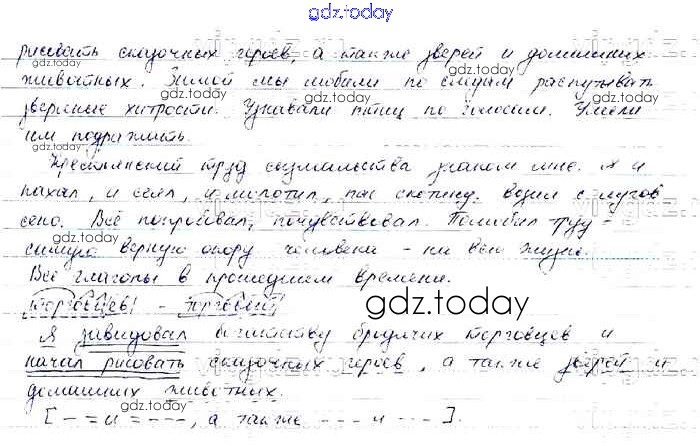 gdz.today
рисовать сказочных героев, а также зверей и домашних
животных. Зимой мы любили по следам распутывать
звериные хитрости. Узнавали птиц по голосам. Умели
им подражать.
Крестьянский труд сызмальства знаком мне. Я и
пахал, и сеял, и молотил, пас скотину, возил с лугов
сено. Всё попробовал, почувствовал. Полюбил труд –
самую верную опору человека – на всю жизнь.
Все глаголы в прошедшем времени.
торговцев – торговый
gdz.today
Я завидовал богатству бродячих торговцев и
начал рисовать сказочных героев, а также зверей и
домашних животных.
[ – = и = –––, а также ––– и ––– ].